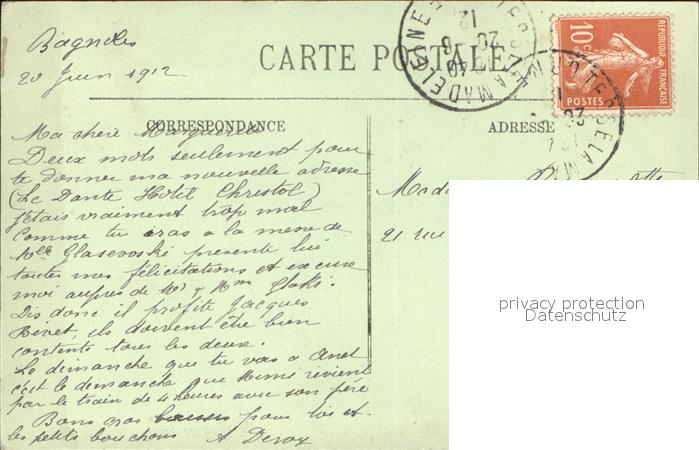 Bagnoles
20 Juin 1912
CARTE POSTALE
RÉPUBLIQUE FRANÇAISE
10c
POSTES
CORRESPONDANCE
ADRESSE
Ma chère Marguerite
Deux mots seulement pour
te donner ma nouvelle adresse
(Le Dante Hotel Christol)
J'étais vraiment trop mal
Comme tu iras a la messe de
Mlle présente lui
toutes mes félicitations et excuse
moi auprès de Mr & Mme
Dis donc il profite Jacques
Rivet, ils doivent être bien
contents tous les deux.
Le dimanche que tu vas a Anet
c'est le dimanche que Mimi revient
par le train de 4 heures avec son père
Bons gros baisers pour toi et
les petits bouchons A Deroy
Mada
21 rue
privacy protection
Datenschutz